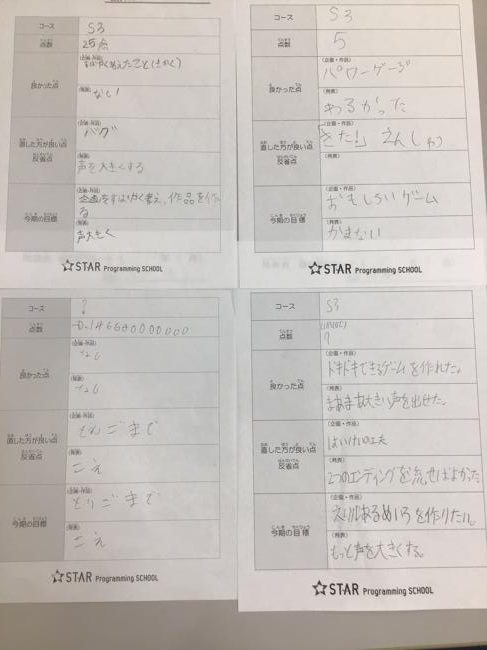 コース
S3
点数
25点
良かった点
(企画・作品)
すばやく考えたこと(きかく)
(発表)
ない
直した方が良い点
反省点
(企画・作品)
バグ
(発表)
声を大きくする
今期の目標
(企画・作品)
企画をすばやく考え、作品を作
る
(発表)
声大きく
STAR Programming SCHOOL
コース
S3
点数
5
良かった点
(企画・作品)
パワーゲージ
(発表)
わるかった
直した方が良い点
反省点
(企画・作品)
「きた!」えんしゅつ
(発表)
今期の目標
(企画・作品)
おもしろいゲーム
(発表)
かまない
STAR Programming SCHOOL
コース
?
点数
良かった点
(企画・作品)
なし
(発表)
なし
直した方が良い点
反省点
(企画・作品)
(発表)
こえ
今期の目標
(企画・作品)
(発表)
こえ
STAR Programming SCHOOL
コース
S3
点数
7
良かった点
(企画・作品)
ドキドキできるゲームを作れた。
(発表)
まあまあ大きい声を出せた。
直した方が良い点
反省点
(企画・作品)
はいけいの工夫
(発表)
2つのエンディングを流せばよかった
今期の目標
(企画・作品)
めいろを作りたい。
(発表)
もっと声を大きくする。
STAR Programming SCHOOL